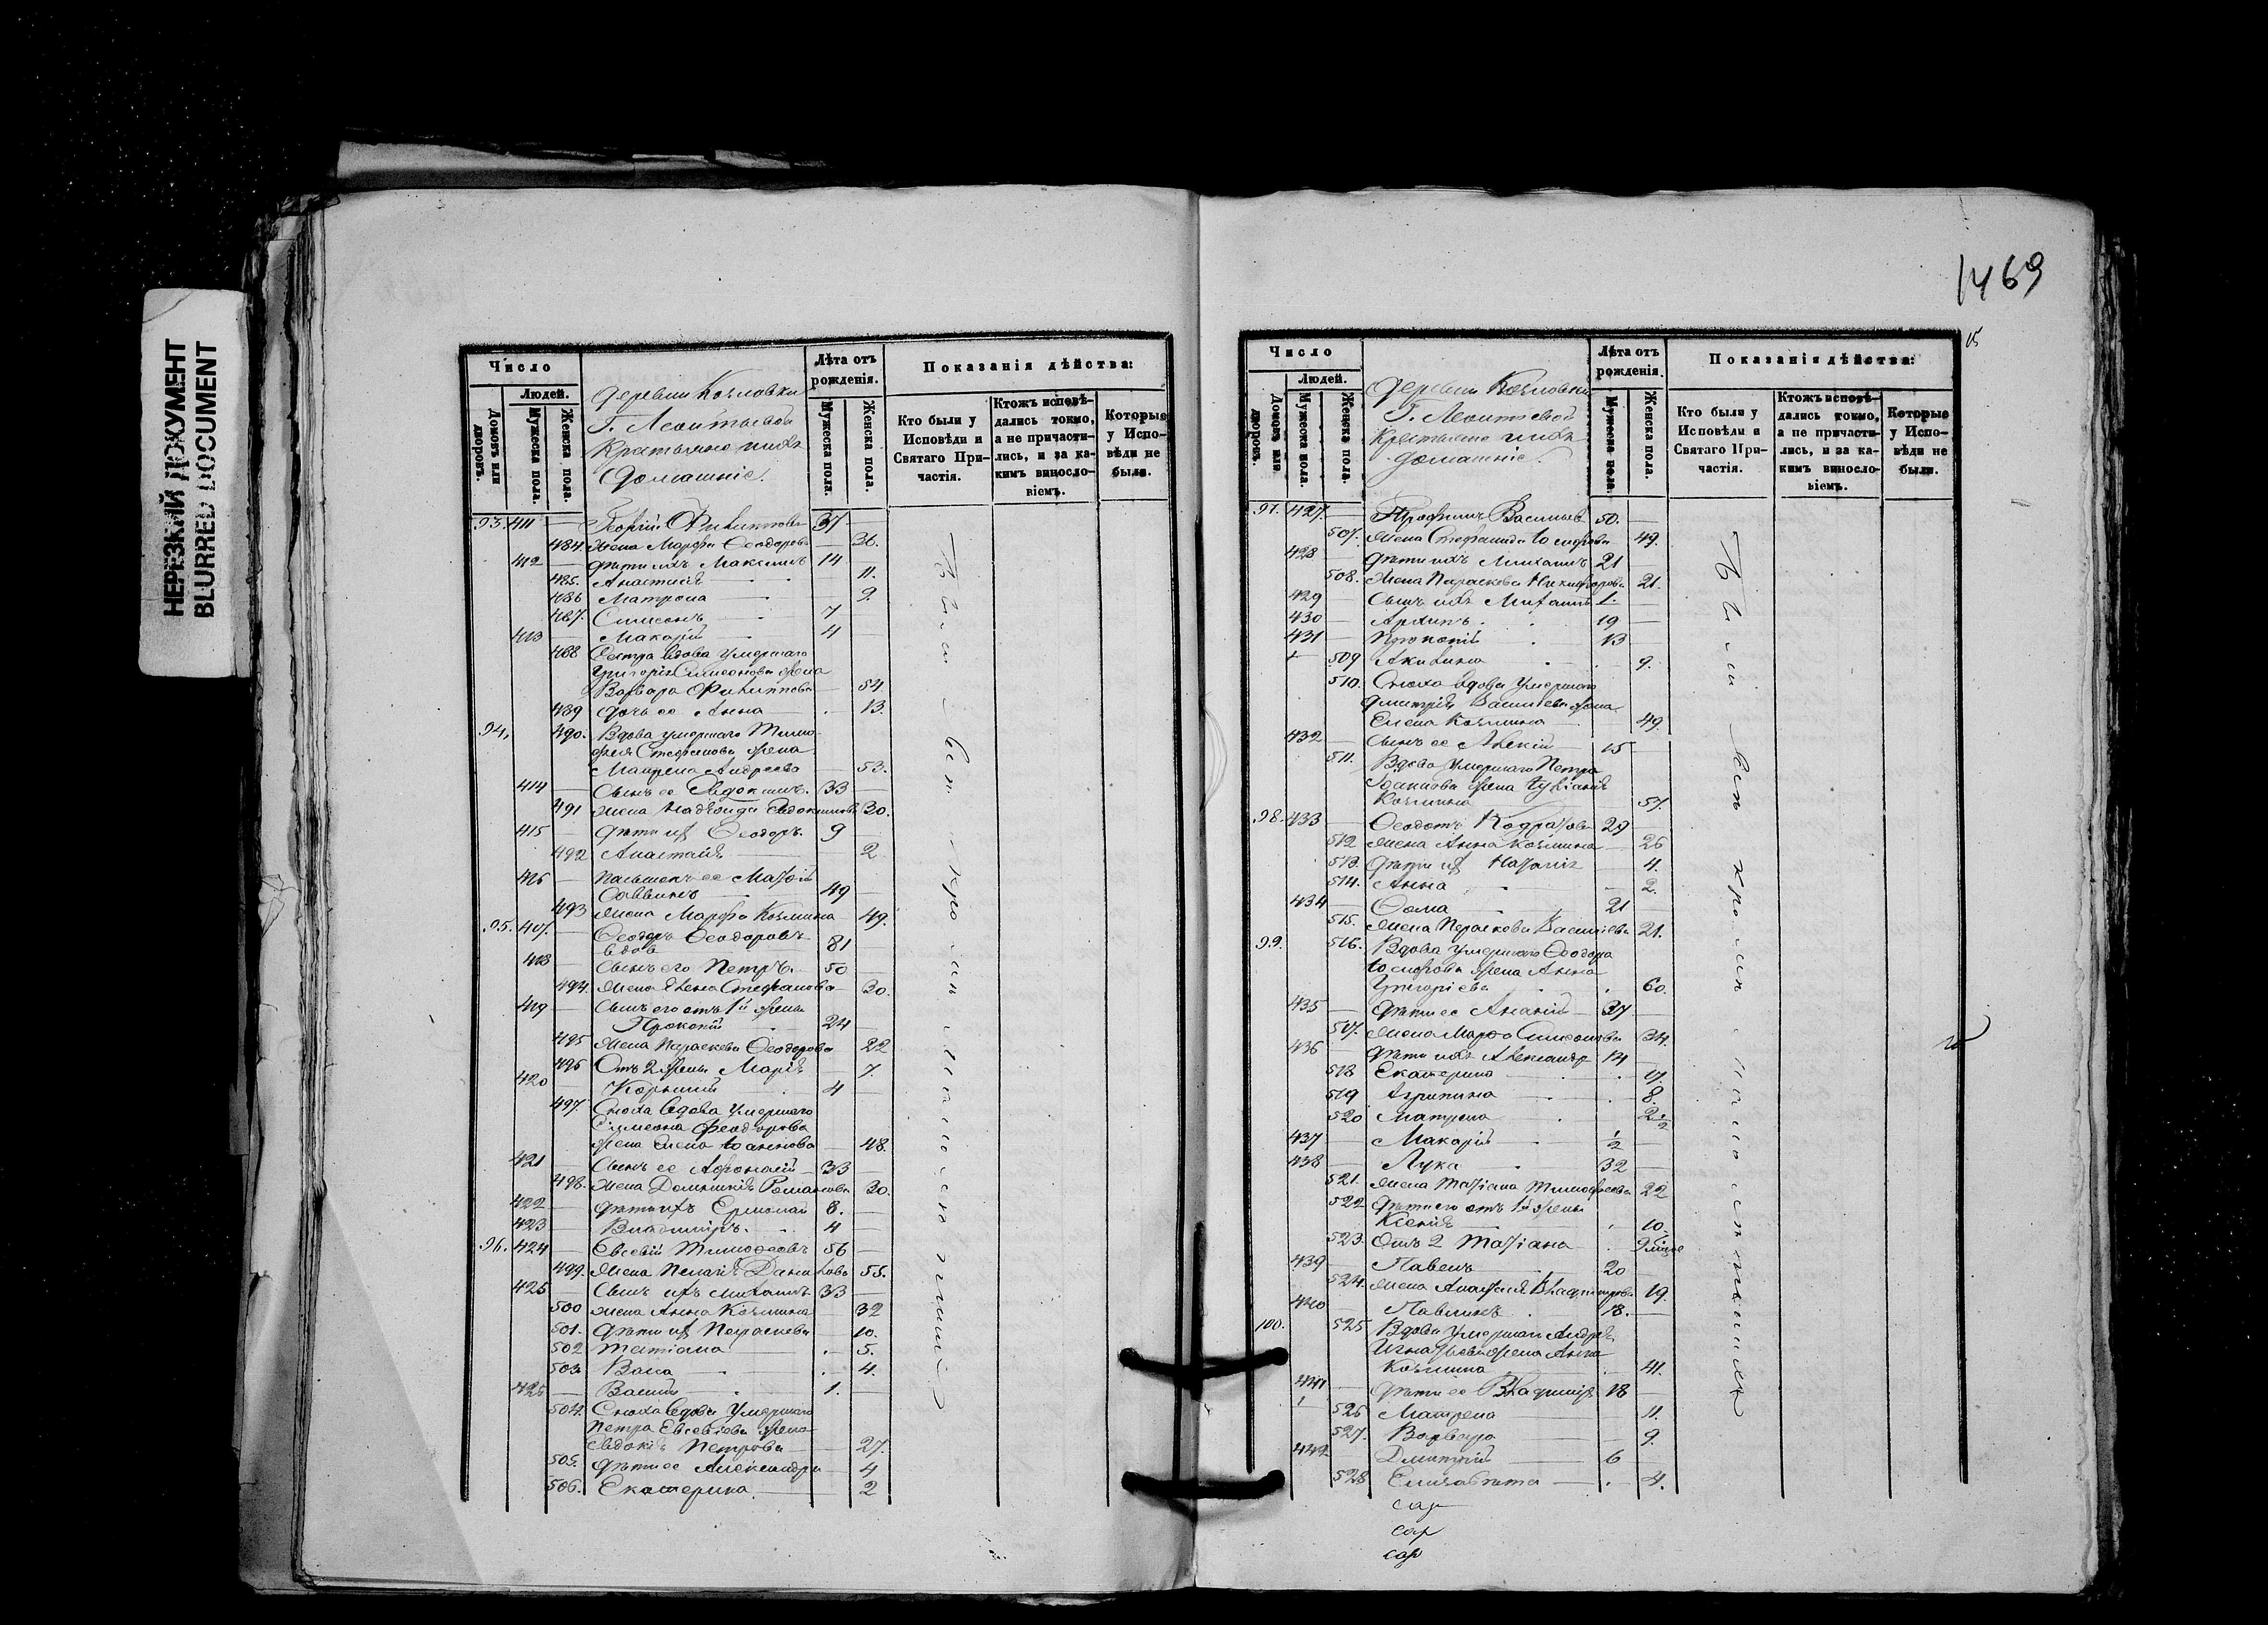 НЕРЕЗКИЙ ДОКУМЕНТ
BLURRED DOCUMENT
Число
Людей.
Домовъ или дворовъ.
Мужеска пола.
Женска пола.
Деревни Козловки
Г. Леонтьевой
Крестьяне и ихъ
домашніе.
Лѣта отъ рожденія.
Мужеска пола.
Женска пола.
Показанія дѣйства:
Кто были у Исповѣди и Святаго Причастія.
Ктожъ исповѣдались токмо, а не причастились, и за какимъ винословіемъ.
Которые у Исповѣди не были.
93. 411 Георгій Филипповъ 37
484. Жена Марфа Ѳеодорова 36.
412 Дѣти ихъ Максимъ 14
485. Анастасія 11.
486 Матрона 9.
487. Симеонъ 7
413 Макарій 4
488 Сестра вдова умершаго
Григорія Симеонова жена
Варвара Филиппова 54.
489 Дочь ее Анна 13.
94. 490. Вдова умершаго Тимо-
фея Стефанова жена
Матрена Андреева 53.
414 Сынъ ее Евдокимъ 33
491 Жена 30.
415 Дѣти их Ѳеодоръ 9
492 Анастасія 2
416
Саввинъ 49
493 Жена Марфа Козмина 49.
95. 417. Ѳеодоръ Ѳеодоровъ
вдов 81
418 Сынъ его Петръ 50
494. Жена Елена Стефанова 30.
419 Сынъ его отъ 1й жены
24
495 Жена Параскева Ѳеодорова 22
496 Отъ 2 жены Марія 7.
420 Корнилій 4
497. Сноха вдова умершаго
Симеона Феодорова
жена Елена Іоаннова 48.
421 Сынъ ее Афонасій 33
498. Жена Домникія Романова 30.
422 Дѣти ихъ Ермолай 8.
423 Владимиръ 4
96. 424 Евсевій Тимофеевъ 56
499. Жена Пелагія Данилова 55.
425 Сынъ ихъ Михаилъ 33
500 Жена Анна Козмина 32
501. Дѣти их Параскева 10.
502 Татіана 5.
503. Васса 4.
426 Василій 1.
504. Сноха вдова умершаго
Петра Евсевіева жена
Евдокія Петрова 27.
505. Дѣти ее Александра 4
506. Екатерина 2
1469
15
Число
Людей.
Домовъ или дворовъ.
Мужеска пола.
Женска пола.
Деревни Козловки
Г. Леонтьевой
Крестьяне и ихъ
домашніе.
Лѣта отъ рожденія.
Мужеска пола.
Женска пола.
Показанія дѣйства:
Кто были у Исповѣди и Святаго Причастія.
Ктожъ исповѣдались токмо, а не причастились, и за какимъ винословіемъ.
Которые у Исповѣди не были.
97. 427. Трофимъ Васильевъ 50.
507. Жена Стефанида Іосифова 49.
428 Дѣти ихъ Михаилъ 21
508. Жена Параскева Никифорова 21.
429 Сынъ ихъ Михаилъ 1.
430 Архипъ 19
431 Прокопій 13
509 Акилина 9.
510. Сноха вдова умершаго
Дмитрія Васильева жена
Елена Козмина 49.
432 Сынъ ее Алексій 15
511. Вдова умершаго Петра
Іоаннова жена Іуліанія
Козмина 57.
98. 433 Ѳеодотъ 29
512 Жена Анна Козмина 26
513. Дѣти их Наталія 4.
514. Анна 2.
434 Ѳома 21
515. Жена Параскева Васильева 21.
99. 516. Вдова умершаго Ѳеодора
Іосифова жена Анна
Григоріева 60.
435 Дѣти ее Ананій 37
517. Жена Марфа Симеонова 34.
436 Дѣти ихъ Александръ 14
518 Екатерина 17.
519 Агрипина 8.
520 Матрена 2 1/2
437 Макарій 1/2
438 Лука 32
521. Жена Татіана Тимофеева 22
522 Дѣти его отъ 1й жены
Ксенія 10.
523. Отъ 2 Татіана
439 Павелъ 20
524. Жена Анастасія Владимирова 19.
440 Павлинъ 18.
100. 525 Вдова умершаго Андрея
Игнатьева жена Анна
Козмина 41.
441 Дѣти ее Владимиръ 18
526 Матрена 11.
527. Варвара 9.
442 Дмитрій 6
528 Елизавета 4.